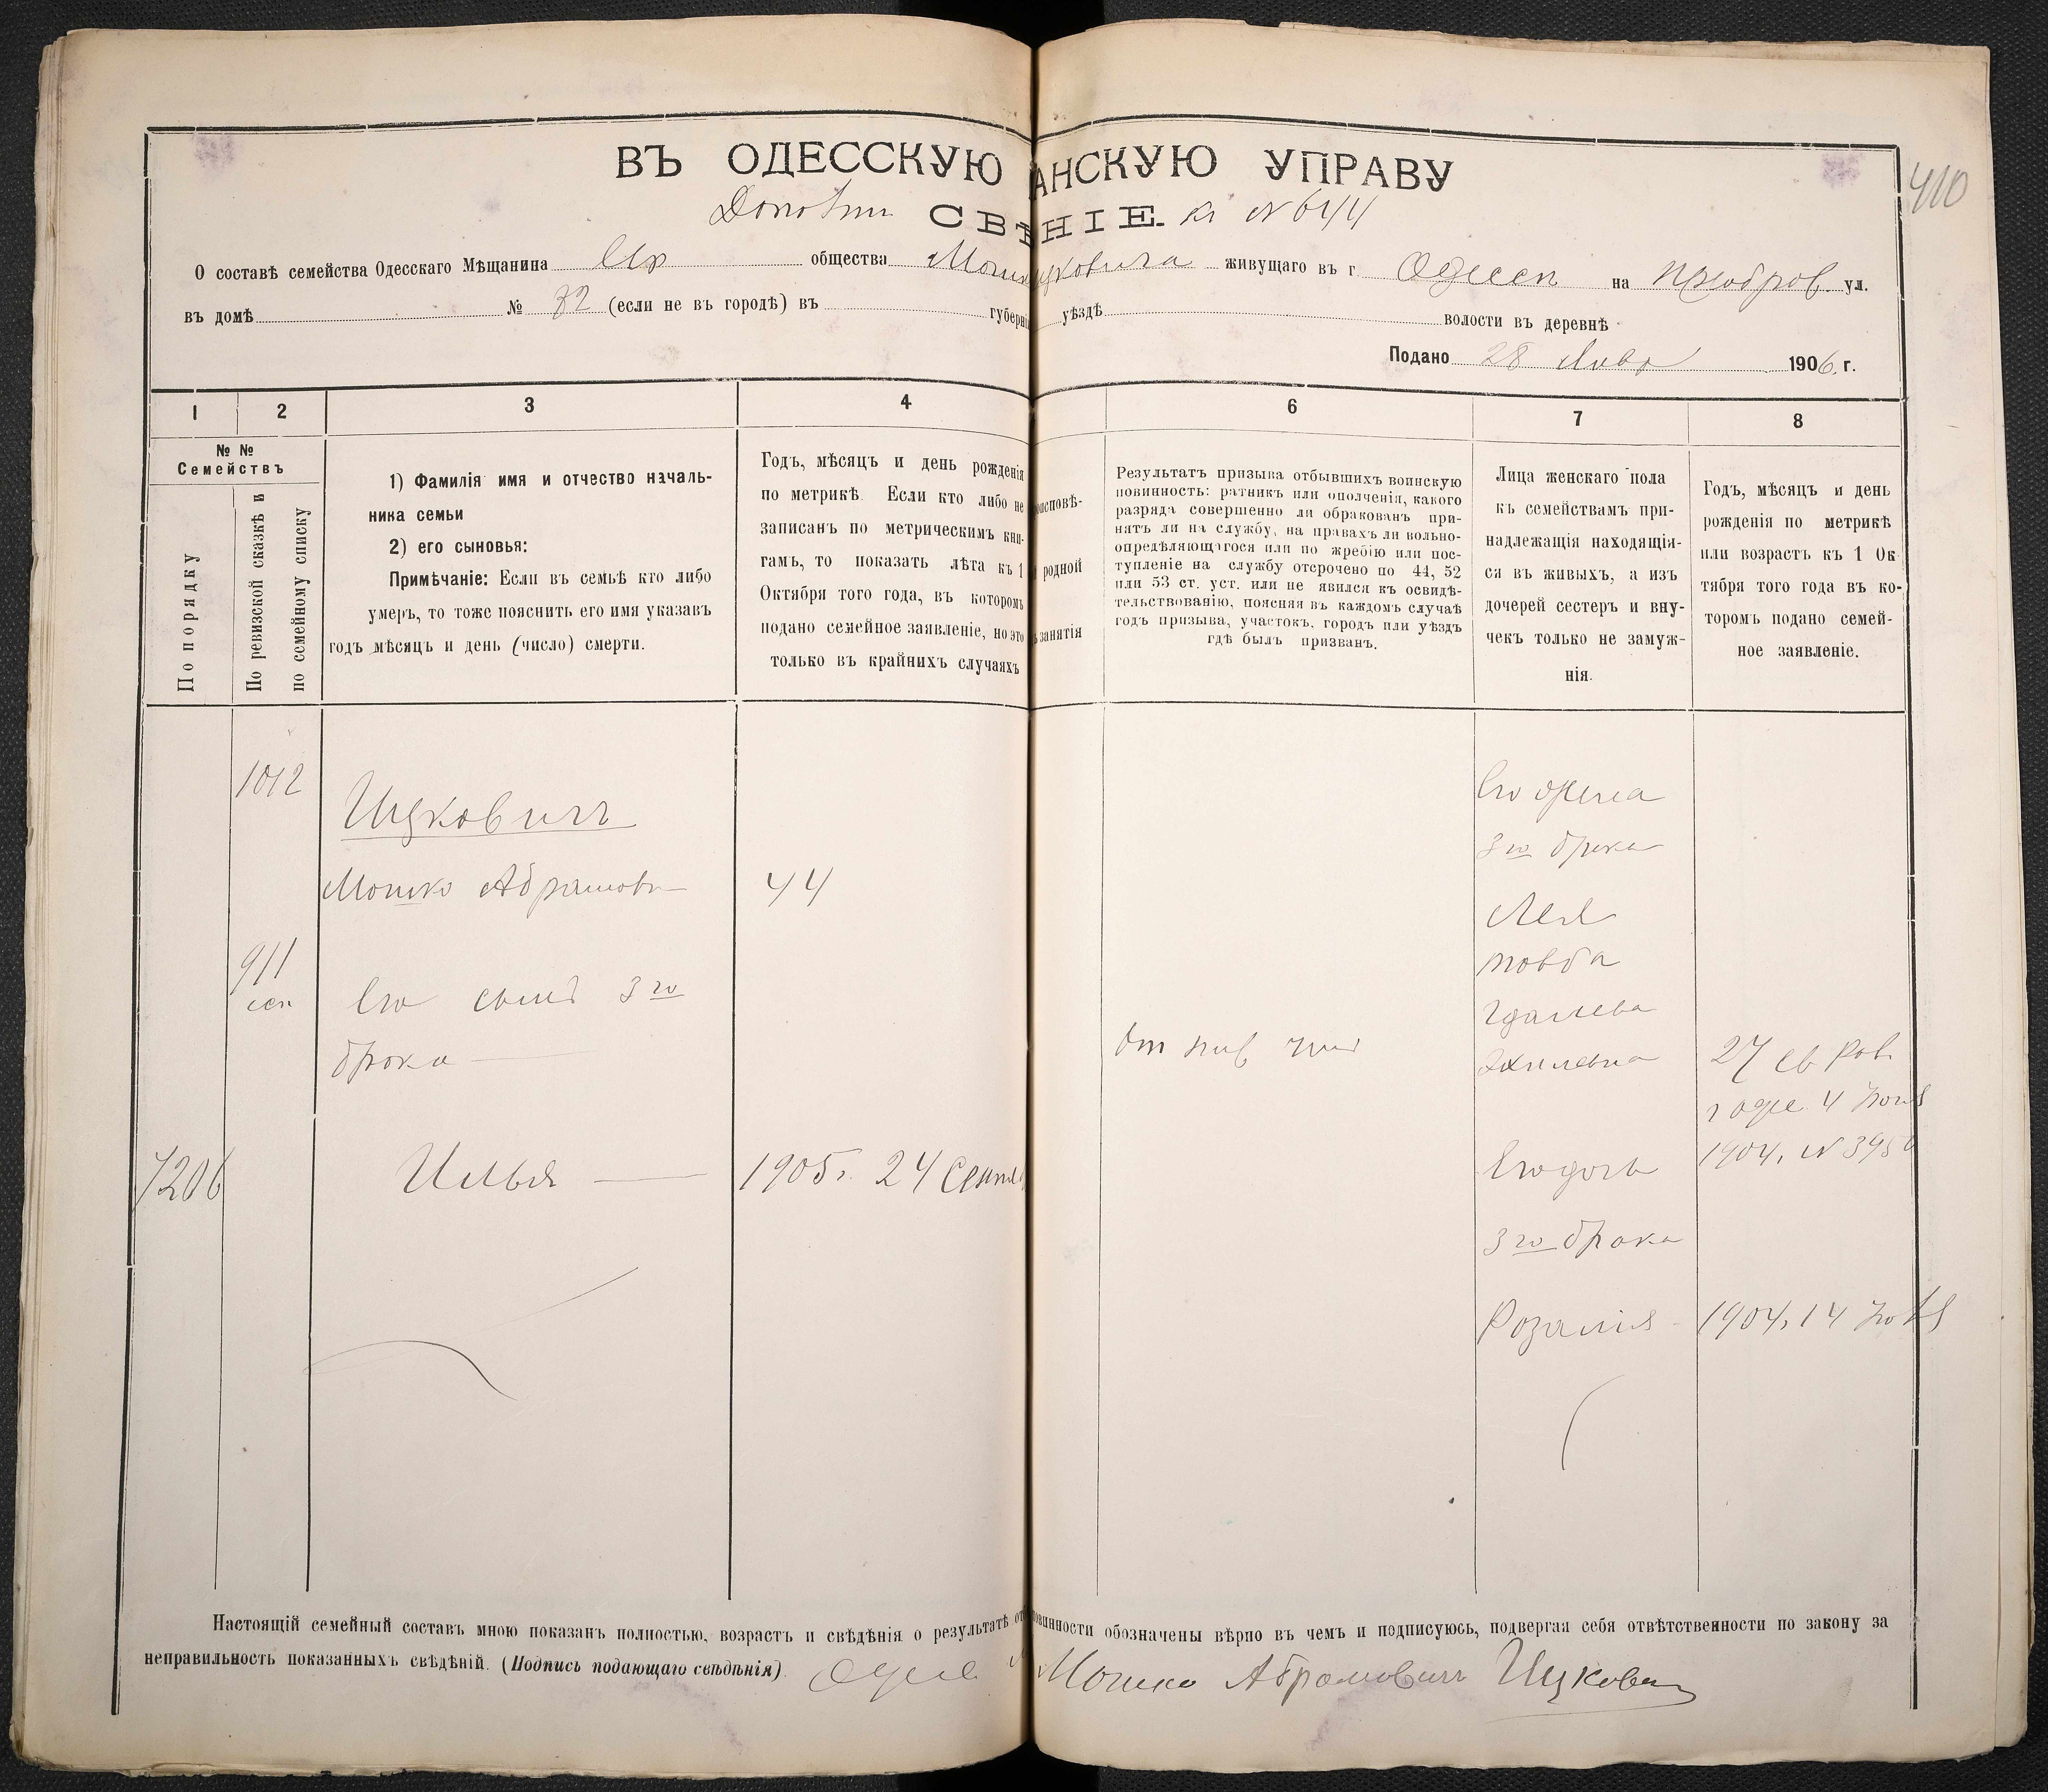 410
ВЪ ОДЕССКУЮ АНСКУЮ УПРАВУ
СВѢ НІЕ. къ № 644
О составѣ семейства Одесскаго Мѣщанина Евр общества живущаго въ г. Одессѣ на Преобров. ул.
въ домѣ № (если не въ городѣ) въ губерні уѣздѣ волости въ деревнѣ
Подано 28 Янва 1906 г.
1 2 3 4 6 7 8
№ №
Семействъ
По порядку
По ревизской сказкѣ и
по семейному списку
1) Фамилія имя и отчество началь-
ника семьи
2) его сыновья:
Примѣчаніе: Если въ семьѣ кто либо
умеръ, то тоже пояснить его имя указавъ
годъ мѣсяцъ и день (число) смерти.
Годъ, мѣсяцъ и день рожденія
по метрикѣ. Если кто либо не
записанъ по метрическимъ кни-
гамъ, то показать лѣта къ 1
Октября того года, въ которомъ
подано семейное заявленіе, но это
только въ крайнихъ случаяхъ
оисповѣ-
родной
занятія
Результатъ призыва отбывшихъ воинскую
повинность: ратникъ или ополченія, какого
разряда совершенно ли обракованъ при-
нятъ ли на службу, на правахъ ли вольно-
опредѣляющагося или по жребію или пос-
тупленіе на службу отсрочено по 44, 52
или 53 ст. уст. или не явился къ освидѣ-
тельствованію, поясняя въ каждомъ случаѣ
годъ призыва, участокъ, городъ или уѣздъ
гдѣ былъ призванъ.
Лица женскаго пола
къ семействамъ при-
надлежащія находящія-
ся въ живыхъ, а изъ
дочерей сестеръ и вну-
чекъ только не замуж-
нія.
Годъ, мѣсяцъ и день
рожденія по метрикѣ
или возрастъ къ 1 Ок
тября того года въ ко-
торомъ подано семей-
ное заявленіе.
1012
Ицковичъ
Мошко Абрамовъ
44
911
Его сынъ 3го
брака
7206
Илья
1905г. 24 Сентя
Его жена
3го брака
Лея
Товба
Гдалева
27
1904, № 395
Его дочь
3го брака
Розалія
1904, 14
Настоящій семейный составъ мною показанъ полностью, возрастъ и свѣдѣнія о результатѣ от овинности обозначены вѣрно въ чемъ и подписуюсь, подвергая себя отвѣтственности по закону за
неправильность показанныхъ свѣдѣній. (Подпись подающаго свѣдѣнія). Мошко Абрамовичъ Ицкович